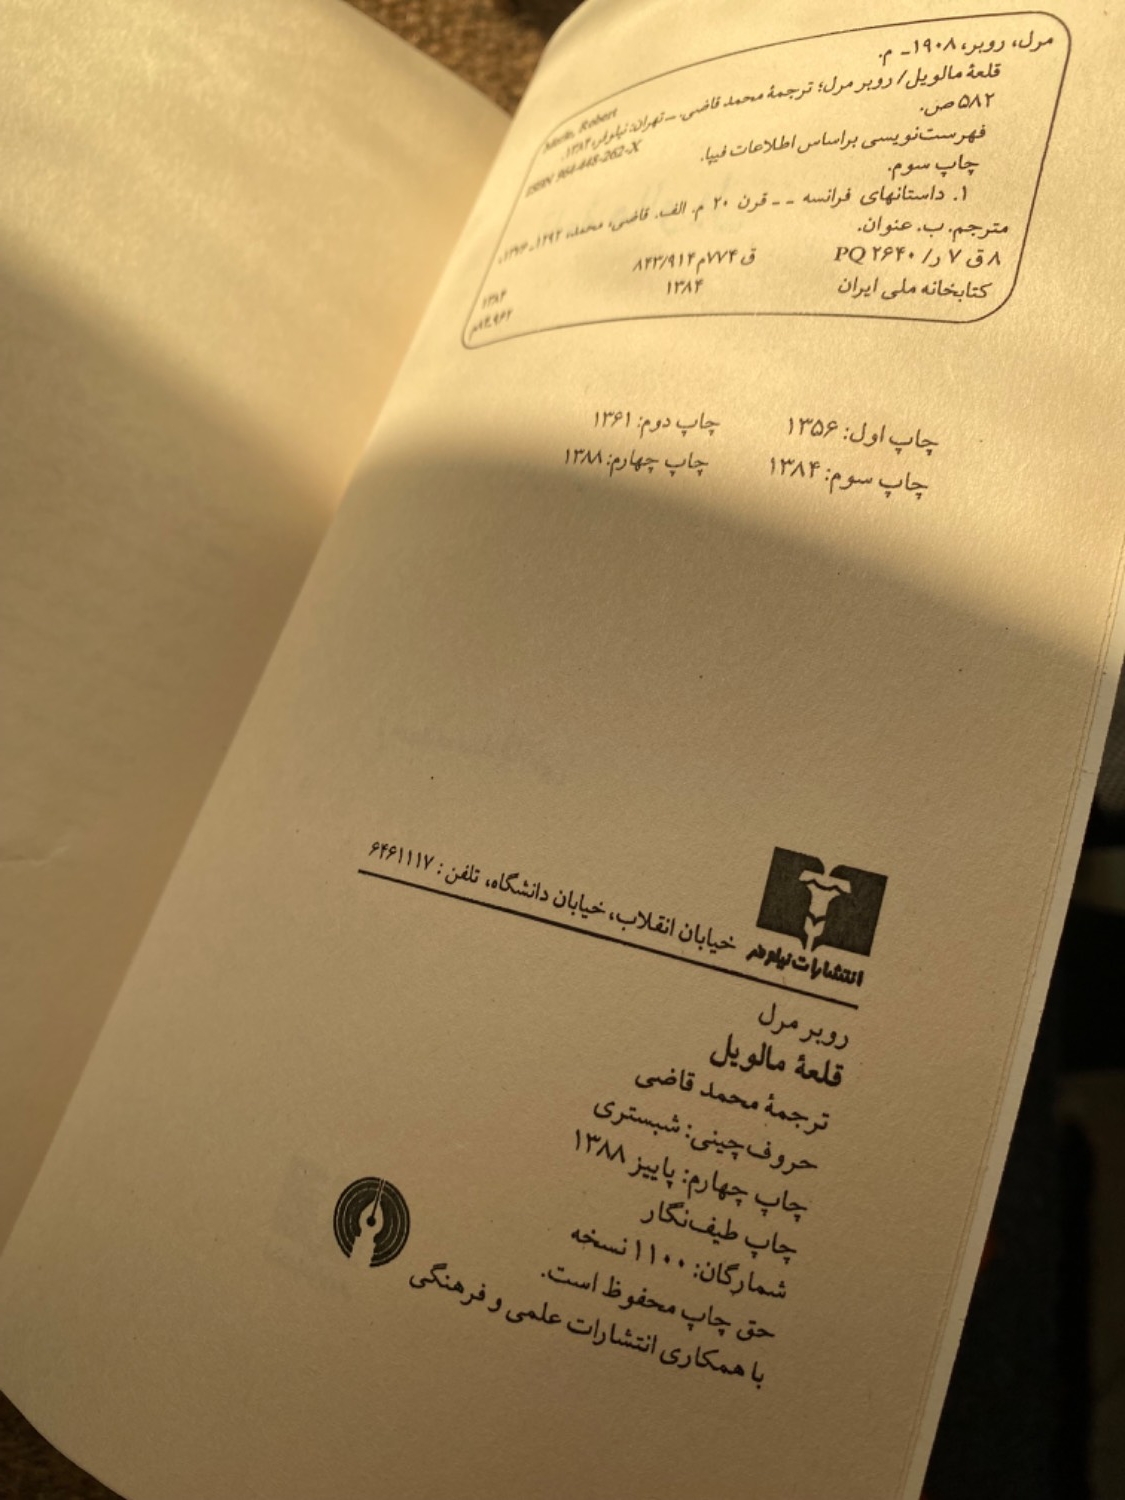 مرل، روبر، ۱۹۰۸ـ م. Merle, Robert
قلعهٔ مالویل/ روبر مرل؛ ترجمهٔ محمد قاضی. ــ تهران: نیلوفر، ۱۳۸۴.
۵۸۲ ص. ISBN 964-448-262-X
فهرست‌نویسی براساس اطلاعات فیپا.
چاپ سوم.
۱. داستانهای فرانسه -- قرن ۲۰ م. الف. قاضی، محمد، ۱۲۹۲ـ ۱۳۷۶،
مترجم. ب. عنوان.
۸ ق ۷ ر/ PQ ۲۶۴۰ ق ۷۷۴م ۸۴۳/۹۱۴ ۱۳۸۴
کتابخانه ملی ایران ۱۳۸۴
چاپ اول: ۱۳۵۶ چاپ دوم: ۱۳۶۱
چاپ سوم: ۱۳۸۴ چاپ چهارم: ۱۳۸۸
انتشارات نیلوفر خیابان انقلاب، خیابان دانشگاه، تلفن: ۶۴۶۱۱۱۷
روبر مرل
قلعهٔ مالویل
ترجمهٔ محمد قاضی
حروف‌چینی: شبستری
چاپ چهارم: پاییز ۱۳۸۸
چاپ طیف‌نگار
شمارگان: ۱۱۰۰ نسخه
حق چاپ محفوظ است.
با همکاری انتشارات علمی و فرهنگی